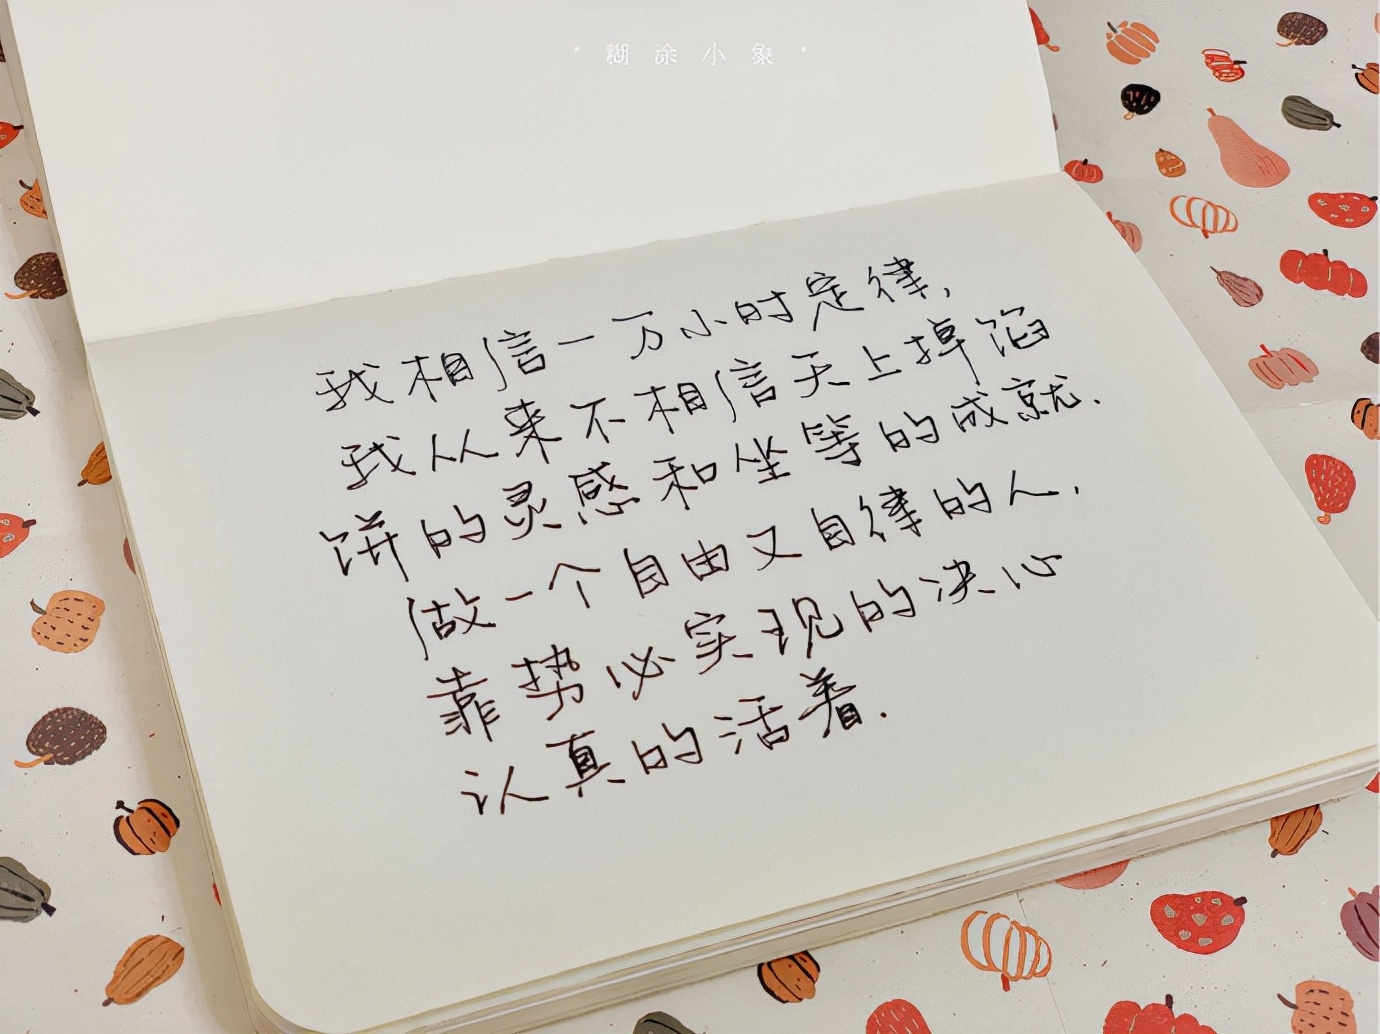 糊涂小象
我相信一万小时定律,
我从来不相信天上掉馅
饼的灵感和坐等的成就.
做一个自由又自律的人.
靠势必实现的决心
认真的活着.